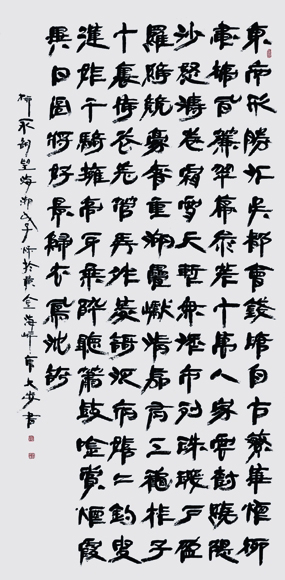 東南形勝江吳都會錢塘自古繁華煙柳
畫橋風簾翠幕參差十萬人家雲樹繞隄
沙怒濤卷霜雪天塹無涯市列珠璣戶盈
羅綺競豪奢重湖疊巘清嘉有三秋桂子
十裏荷花羌管弄晴菱歌泛夜嬉々釣叟
蓮娃千騎擁高牙乘醉聽簫鼓吟賞煙霞
異日圖將好景歸去鳳池誇
柳永詞望海潮戊子於黃金海岸大安書